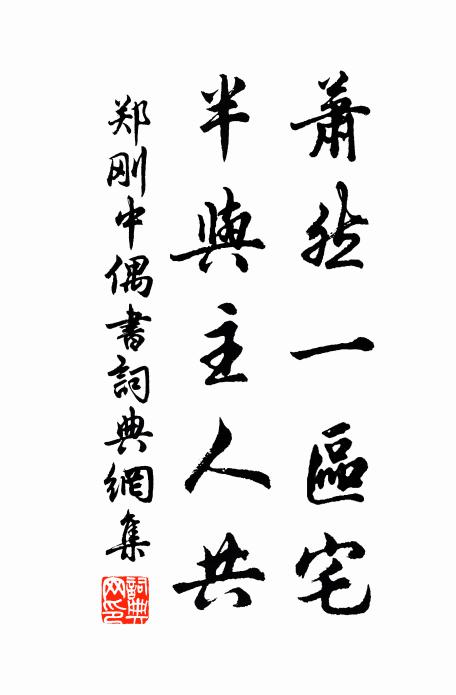 蕭然一區宅
半與主人共
郑刚中偶書詞典網集
詞典网印